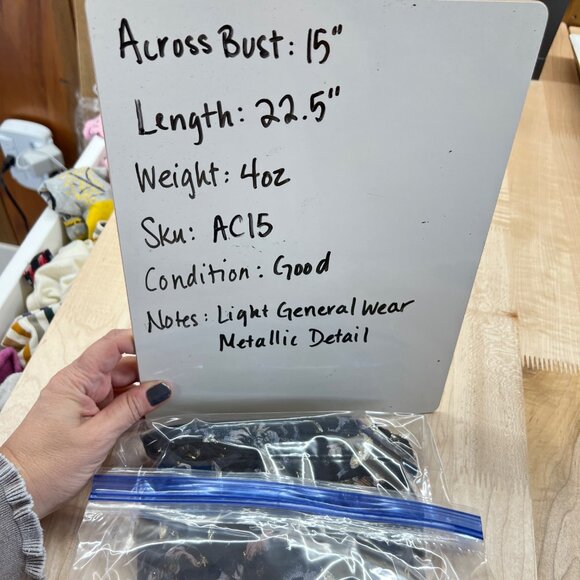 Across Bust: 15"
Length: 22.5"
Weight: 4oz
Sku: AC15
Condition: Good
Notes: Light General Wear
Metallic Detail